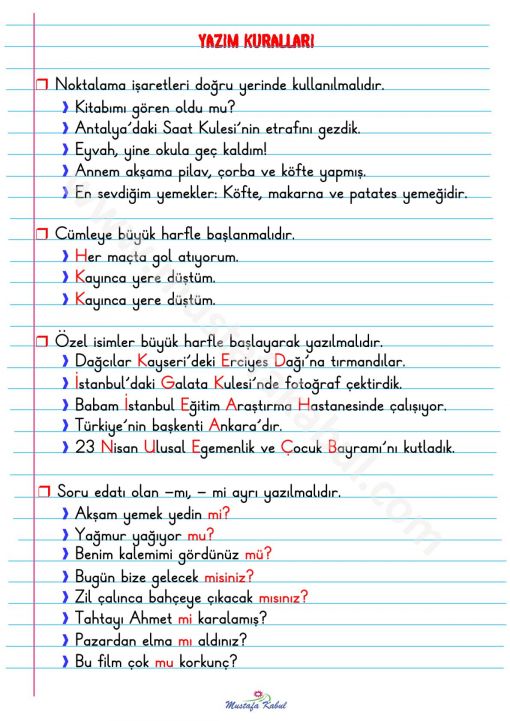 YAZIM KURALLARI
❒ Noktalama işaretleri doğru yerinde kullanılmalıdır.
❫ Kitabımı gören oldu mu?
❫ Antalya'daki Saat Kulesi'nin etrafını gezdik.
❫ Eyvah, yine okula geç kaldım!
❫ Annem akşama pilav, çorba ve köfte yapmış.
❫ En sevdiğim yemekler: Köfte, makarna ve patates yemeğidir.
❒ Cümleye büyük harfle başlanmalıdır.
❫ Her maçta gol atıyorum.
❫ Kayınca yere düştüm.
❫ Kayınca yere düştüm.
❒ Özel isimler büyük harfle başlayarak yazılmalıdır.
❫ Dağcılar Kayseri'deki Erciyes Dağı'na tırmandılar.
❫ İstanbul'daki Galata Kulesi'nde fotoğraf çektirdik.
❫ Babam İstanbul Eğitim Araştırma Hastanesinde çalışıyor.
❫ Türkiye'nin başkenti Ankara'dır.
❫ 23 Nisan Ulusal Egemenlik ve Çocuk Bayramı'nı kutladık.
❒ Soru edatı olan –mı, – mi ayrı yazılmalıdır.
❫ Akşam yemek yedin mi?
❫ Yağmur yağıyor mu?
❫ Benim kalemimi gördünüz mü?
❫ Bugün bize gelecek misiniz?
❫ Zil çalınca bahçeye çıkacak mısınız?
❫ Tahtayı Ahmet mi karalamış?
❫ Pazardan elma mı aldınız?
❫ Bu film çok mu korkunç?
Mustafa Kabul
www.mustafakabul.com